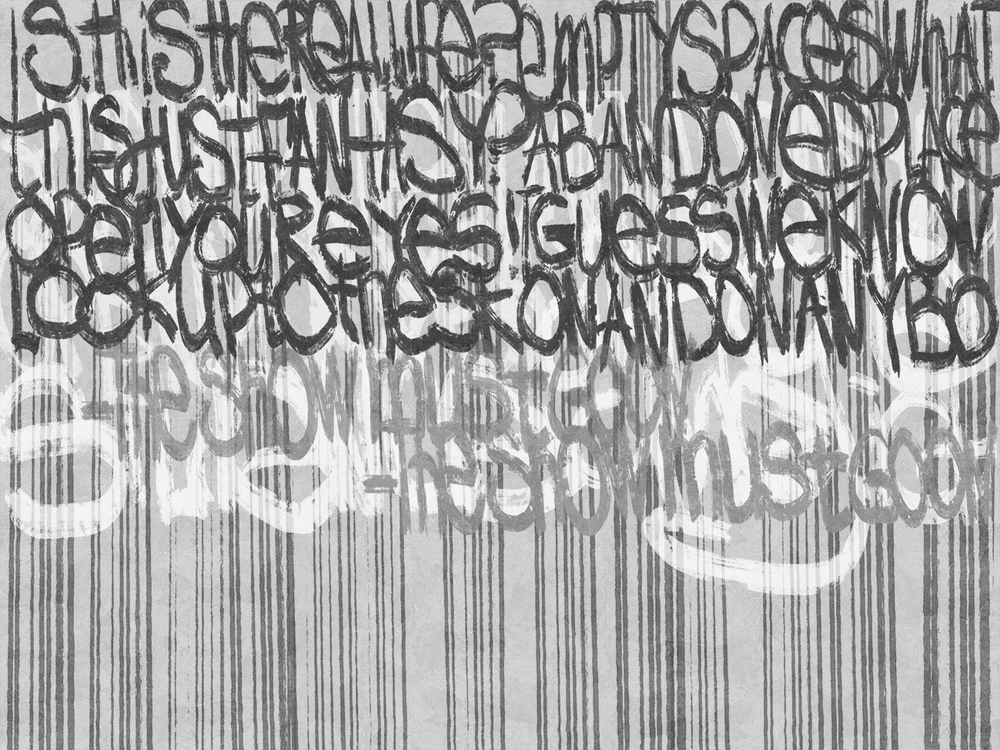 S tHiS tHe REAL LiFe? emPTY SPACeS WHAT
THiS JUST FANtASY? ABANDONeD PLACe
OPeN YOUR eYeS I GUeSS We KNOW
LOOK UP tO tHe SK ON AND ON ANYBO
THe SHOW MUSt GO ON
THe SHOW MUSt GO ON